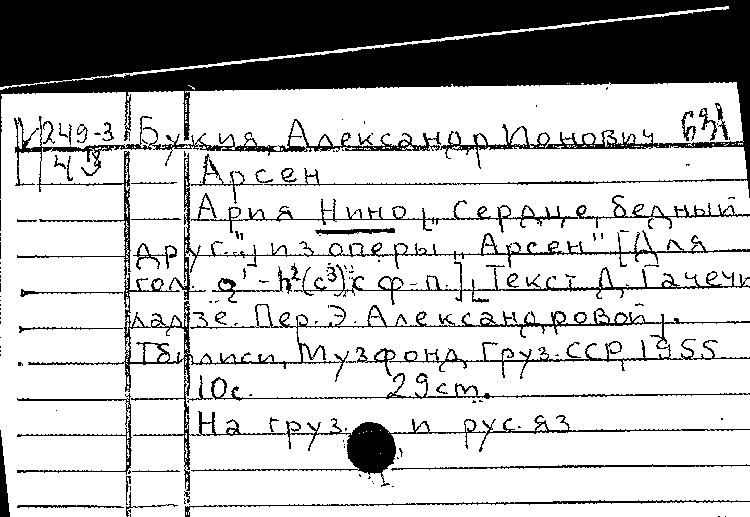 249-3 Букия, Александр Ионович 631
Арсен
Ария Нино [„Сердце, бедный
друг..."] из оперы „Арсен" [Для
гол. a¹-h²(c³) с ф-п.] [Текст Д. Гачечи-
ладзе. Пер. Э. Александровой].
Тбилиси, Музфонд Груз.ССР, 1955
10с. 29ст.
На груз. и рус. яз